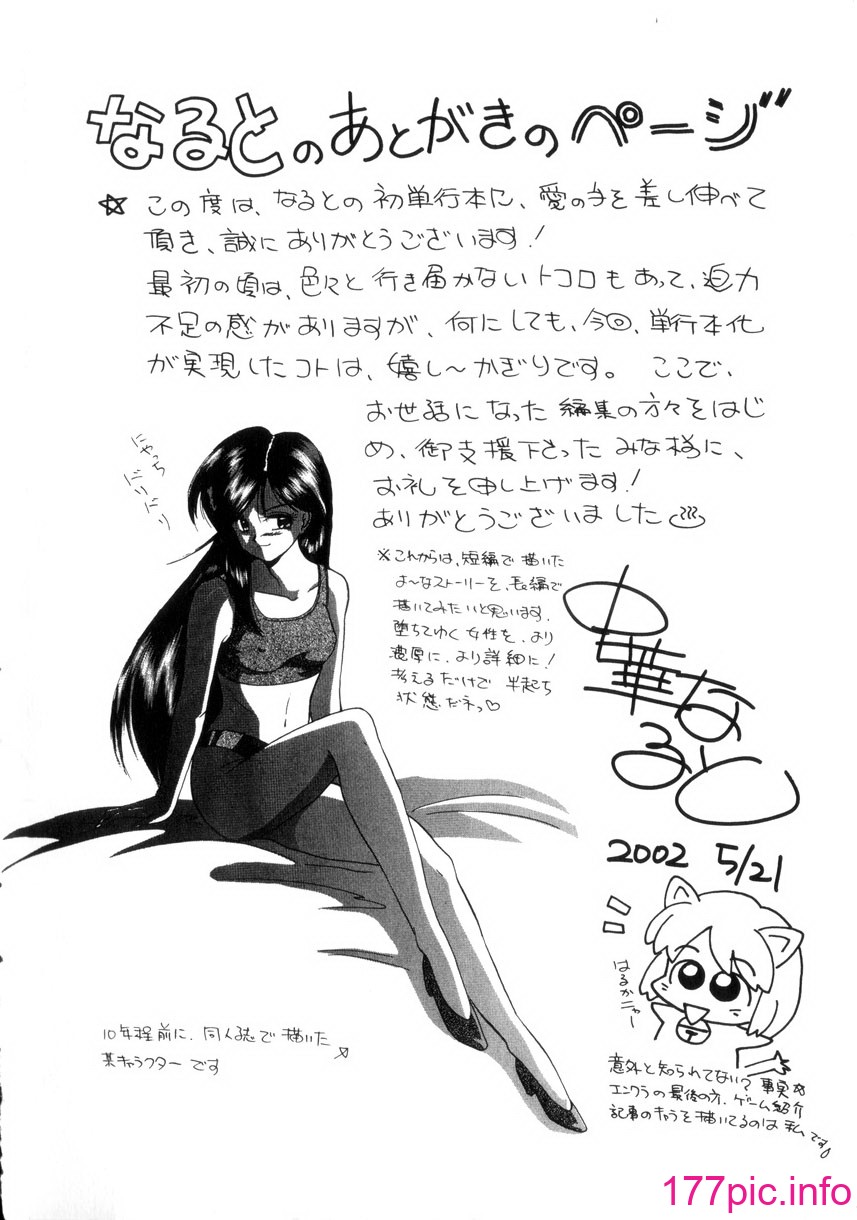 なるとのあとがきのページ
☆ この度は、なるとの初単行本に、愛の手を差し伸べて
頂き、誠にありがとうございます!
最初の頃は、色々と行き届かないトコロもあって、迫力
不足の感がありますが、何にしても、今回、単行本化
が実現したコトは、嬉し〜かぎりです。 ここで、
お世話になった編集の方々をはじ
め、御支援下さったみな様に、
お礼を申し上げます!
ありがとうございました
にゃっち
ドリドリ
※これからは、短編で描いた
よ〜なストーリーを、長編で
描いてみたいと思います.
堕ちてゆく女性を、より
濃厚に、より詳細に!
考えるだけで半起ち
状態だネっ♡
華なると
2002 5/21
はるかニャー
10年程前に、同人誌で描いた
某キャラクターです
意外と知られてない?事実☆
エンクラの最後の方、ゲーム紹介
記事のキャラを描いてるのは私です。
177pic.info